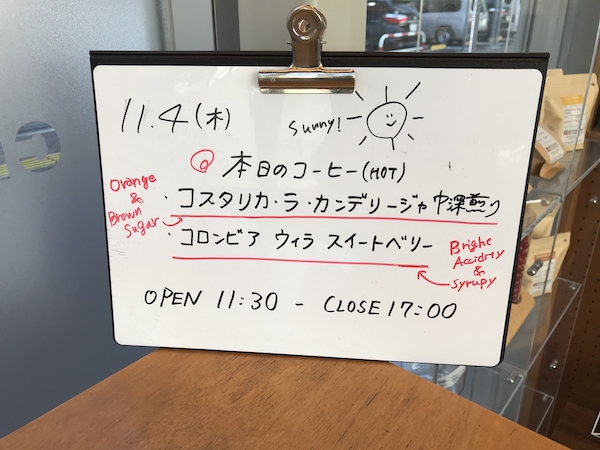 11.4(木)
Sunny!
本日のコーヒー(HOT)
Orange
&
Brown
Sugar
・コスタリカ・ラ・カンデリージャ中深煎り
・コロンビア ウィラ スイートベリー
Brighe
Accidity
&
Syrupy
OPEN 11:30 - CLOSE 17:00